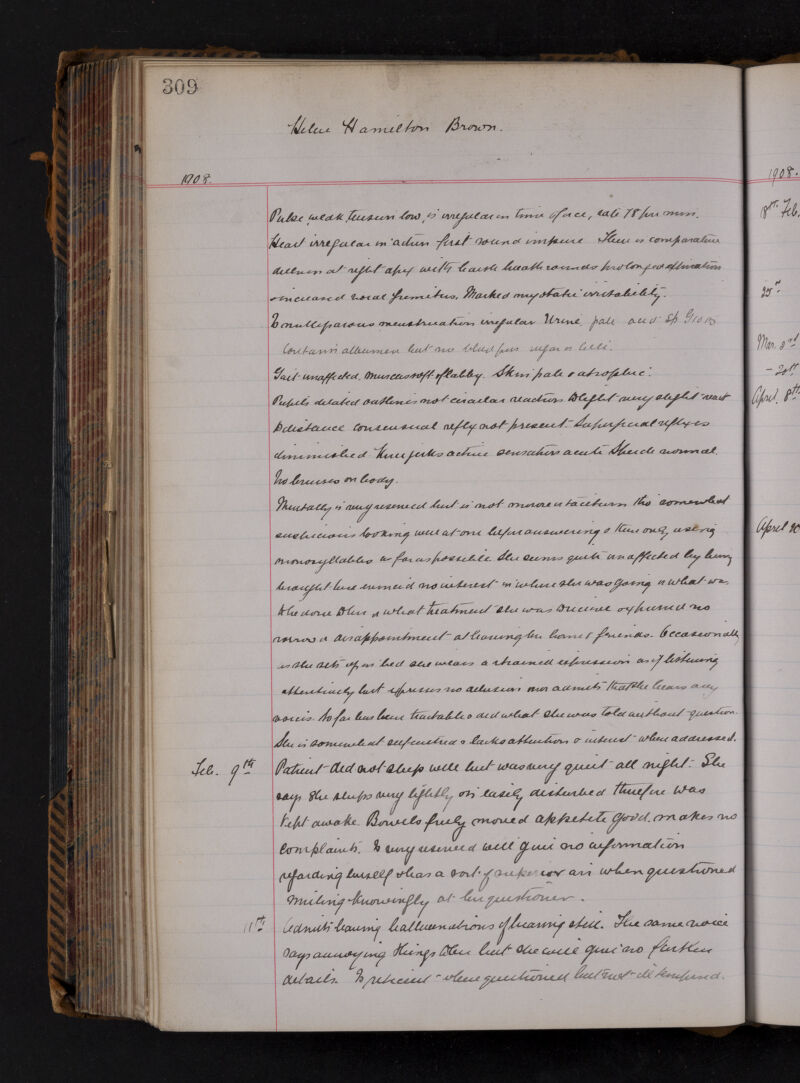 309
Helen Hamilton Brown.
1908.
1908.
Pulse weak, tension low, is irregular in time & force, rate 78 per min.
Heart irregular in action first sound impure There is comparative
dullness at right apex with harsh breath sounds prolonged expiration
& increased vocal fremitus. Marked myotatic irritability.
Is multiparous menstruation irregular Urine pale acid Sp. G 1010
Contains albumen but no blood pus sugar or bile.
Gait unaffected. muscles soft & flabby. Skin pale & atrophic.
Pupils dilated outlines not circular reaction to light very slight react
to distance consensual reflex not present. Superficial reflexes
diminished Knee jerks active sensations acute Speech normal.
No bruises on body.
Mentally is very reserved but is not morose or taciturn tho' somewhat
suspicious looking well at one before answering & then only using
monosyllables as far as possible She seems quite unaffected by being
brought here evinced no interest in where she was going or what was
to be done to her or what treatment she was to receive expressed no
sorrow or disappointment at leaving her home & friends. Occasionally
as she sits up in bed she wears a strained expression as if listening
attentively but expresses no delusion nor admits that she hears any
voices. So far has been tractable & did what she was told without question.
She is somewhat self centred & lacks attention & interest when addressed.
Feb. 9th Patient did not sleep well but was very quiet all night. She
says she sleeps very lightly & is easily disturbed therefore was
kept awake. Bowels freely moved appetite good. makes no
complaints. Is very reserved will give no information
regarding herself & has a sort of superior air when questioned
smiling knowingly at her questioner.
11th Admits having hallucinations of hearing still. The same voice
says annoying things to her but she will give no further
details. Is reticent when questioned but not ill tempered.
8th Feb.
25th
Mar. 3rd
- 20th
April. 8th
April